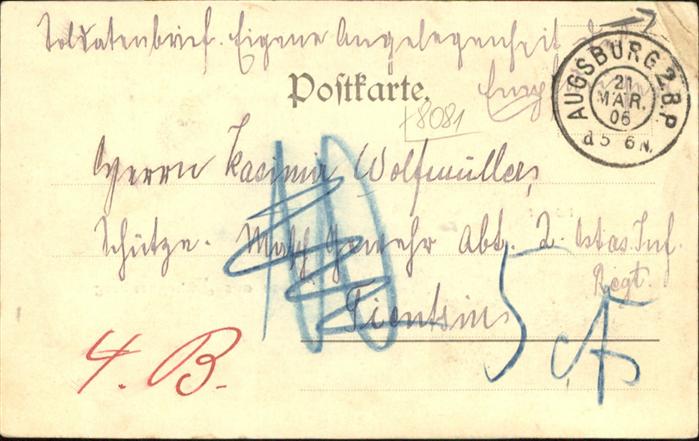 Soldatenbrief. Eigene Angelegenheit d.
Empf
Postkarte.
AUGSBURG 2.B.P.
21
MAR.
06
5 6 N.
8081
Herrn Kasimir Wolfmüller,
Schütze. Masch. Gewehr Abt. 2. Ostas. Inf.
Regt.
Tientsin
5
4. B.